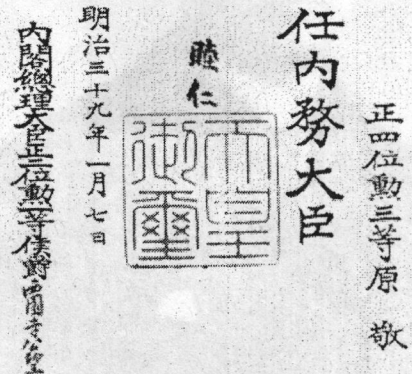 正四位勳三等原 敬
任内務大臣
睦仁
天皇御璽
明治三十九年一月七日
内閣總理大臣正二位勳一等侯爵西園寺公望